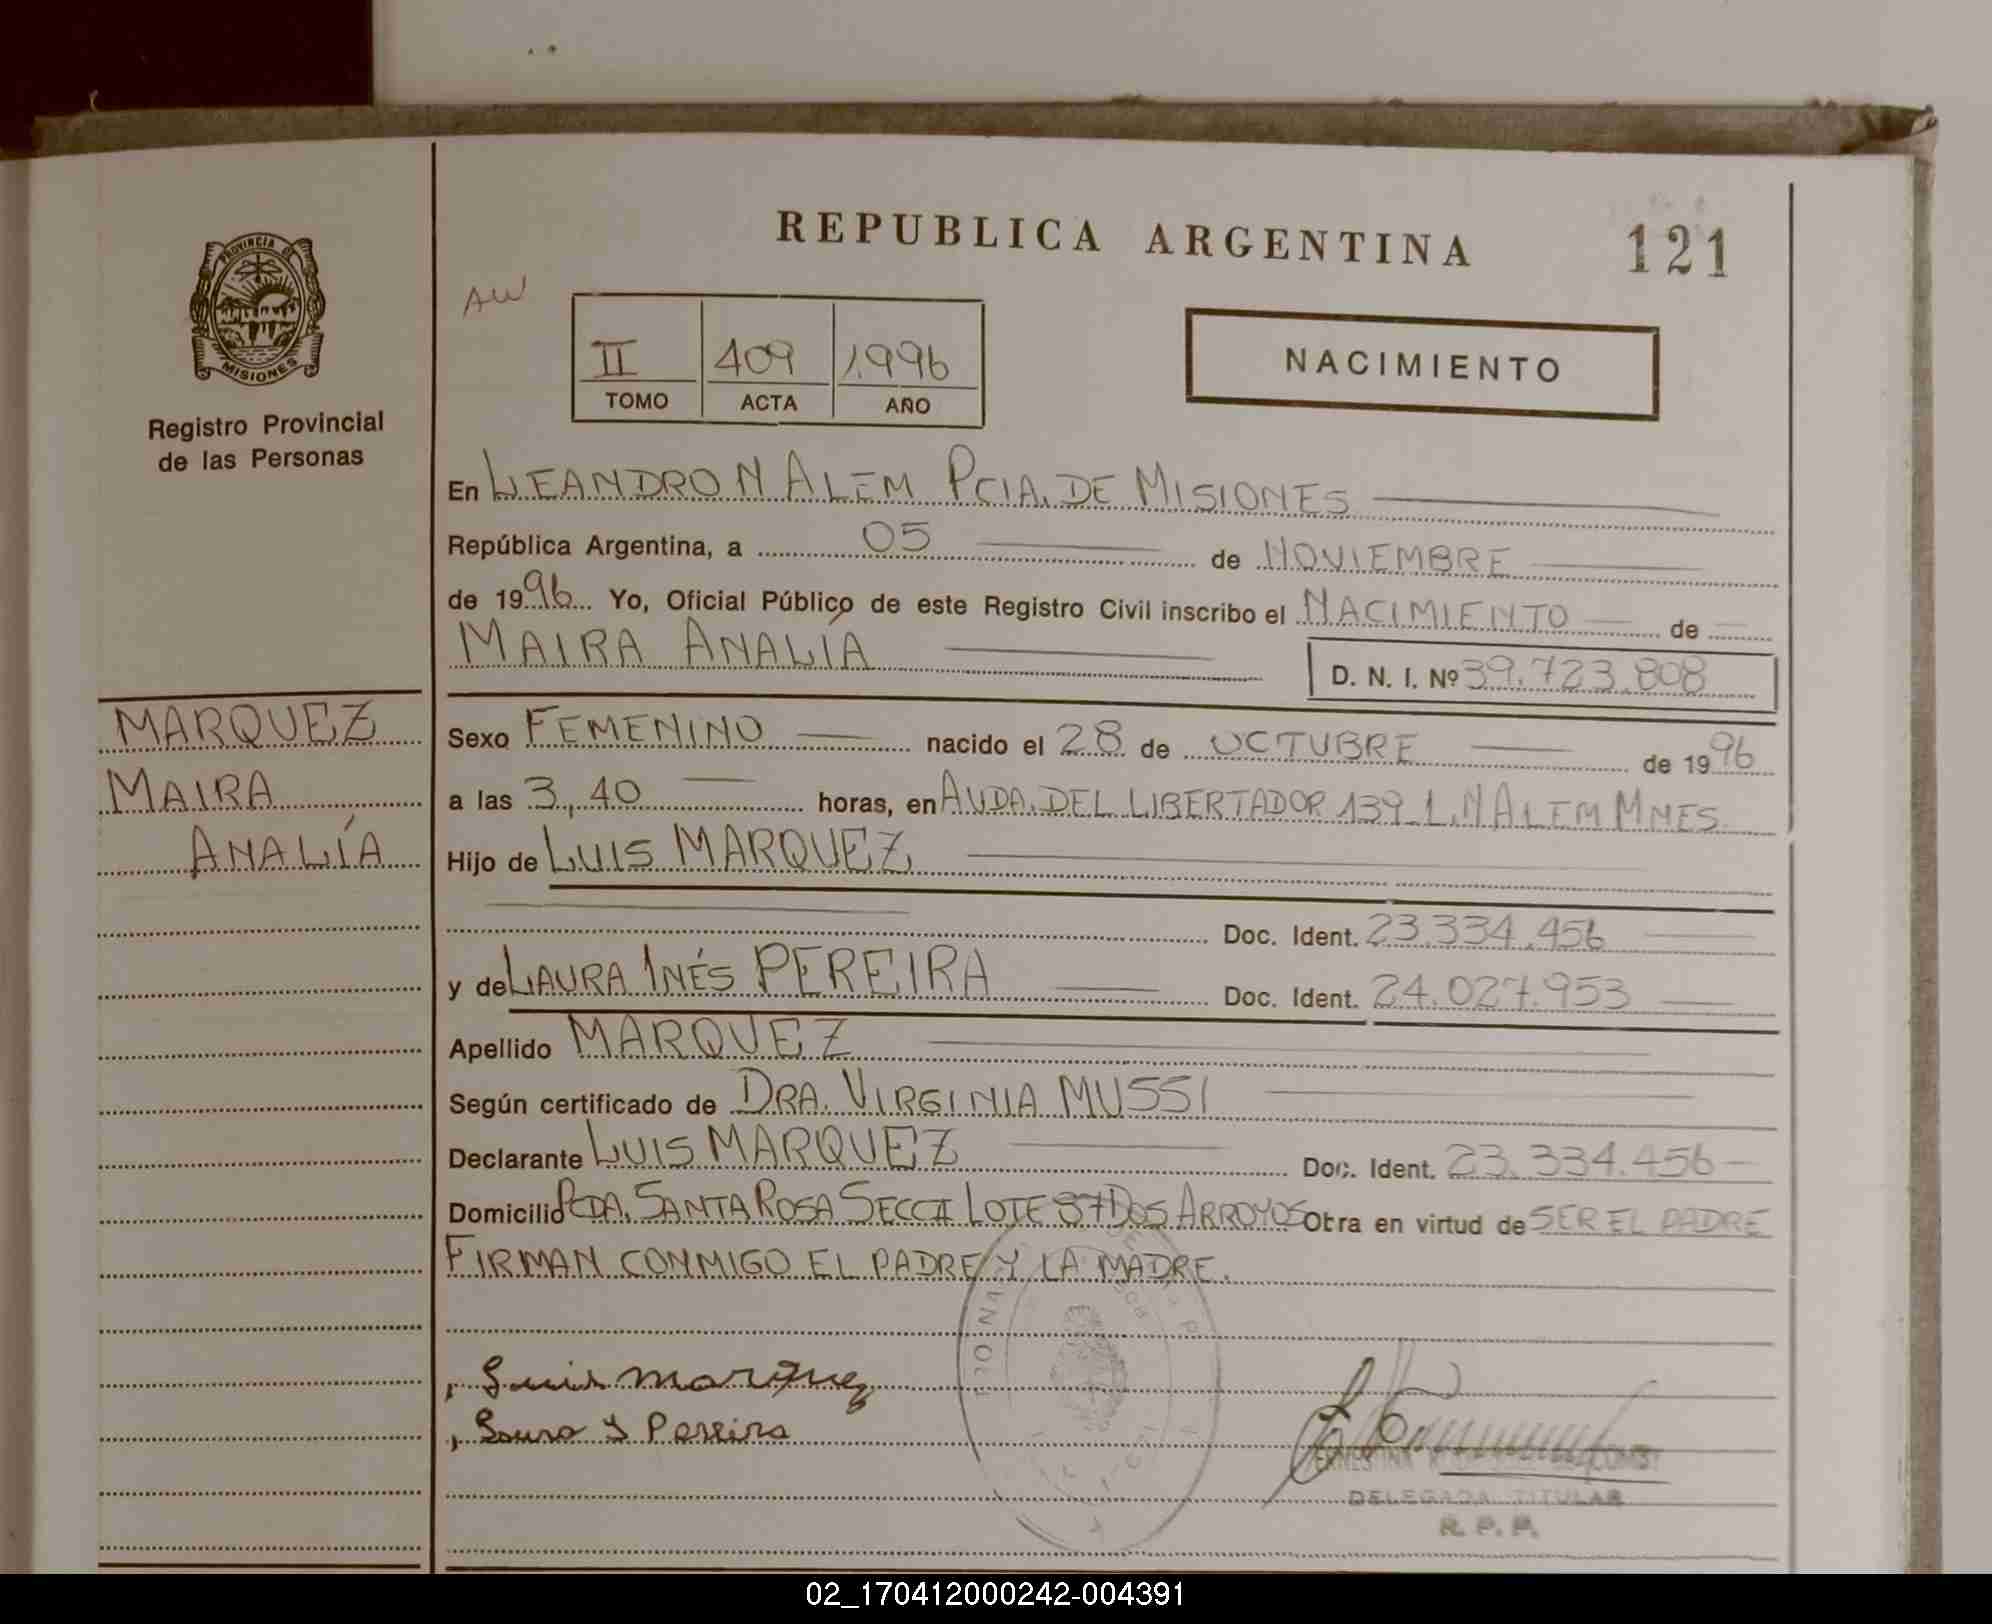 REPUBLICA ARGENTINA
121
PROVINCIA DE
MISIONES
Registro Provincial
de las Personas
AW
II 409 1.996
TOMO ACTA AÑO
NACIMIENTO
En LEANDRO N ALEM PCIA. DE MISIONES
República Argentina, a 05 de NOVIEMBRE
de 1996 Yo, Oficial Público de este Registro Civil inscribo el NACIMIENTO de
MAIRA ANALÍA D. N. I. Nº 39.723.808
MARQUEZ
MAIRA
ANALÍA
Sexo FEMENINO nacido el 28 de OCTUBRE de 1996
a las 3,40 horas, en AVDA. DEL LIBERTADOR 139 L. N ALEM MNES.
Hijo de LUIS MARQUEZ
Doc. Ident. 23.334.456
y de LAURA INÉS PEREIRA Doc. Ident. 24.027.953
Apellido MARQUEZ
Según certificado de DRA. VIRGINIA MUSSI
Declarante LUIS MARQUEZ Doc. Ident. 23.334.456
Domicilio PCDA. SANTA ROSA SECC II LOTE 37 DOS ARROYOS Obra en virtud de SER EL PADRE
FIRMAN CONMIGO EL PADRE Y LA MADRE.
Luis Marquez
Laura I Pereira
ERNESTINA
DELEGADA TITULAR
R. P. P.
02_170412000242-004391